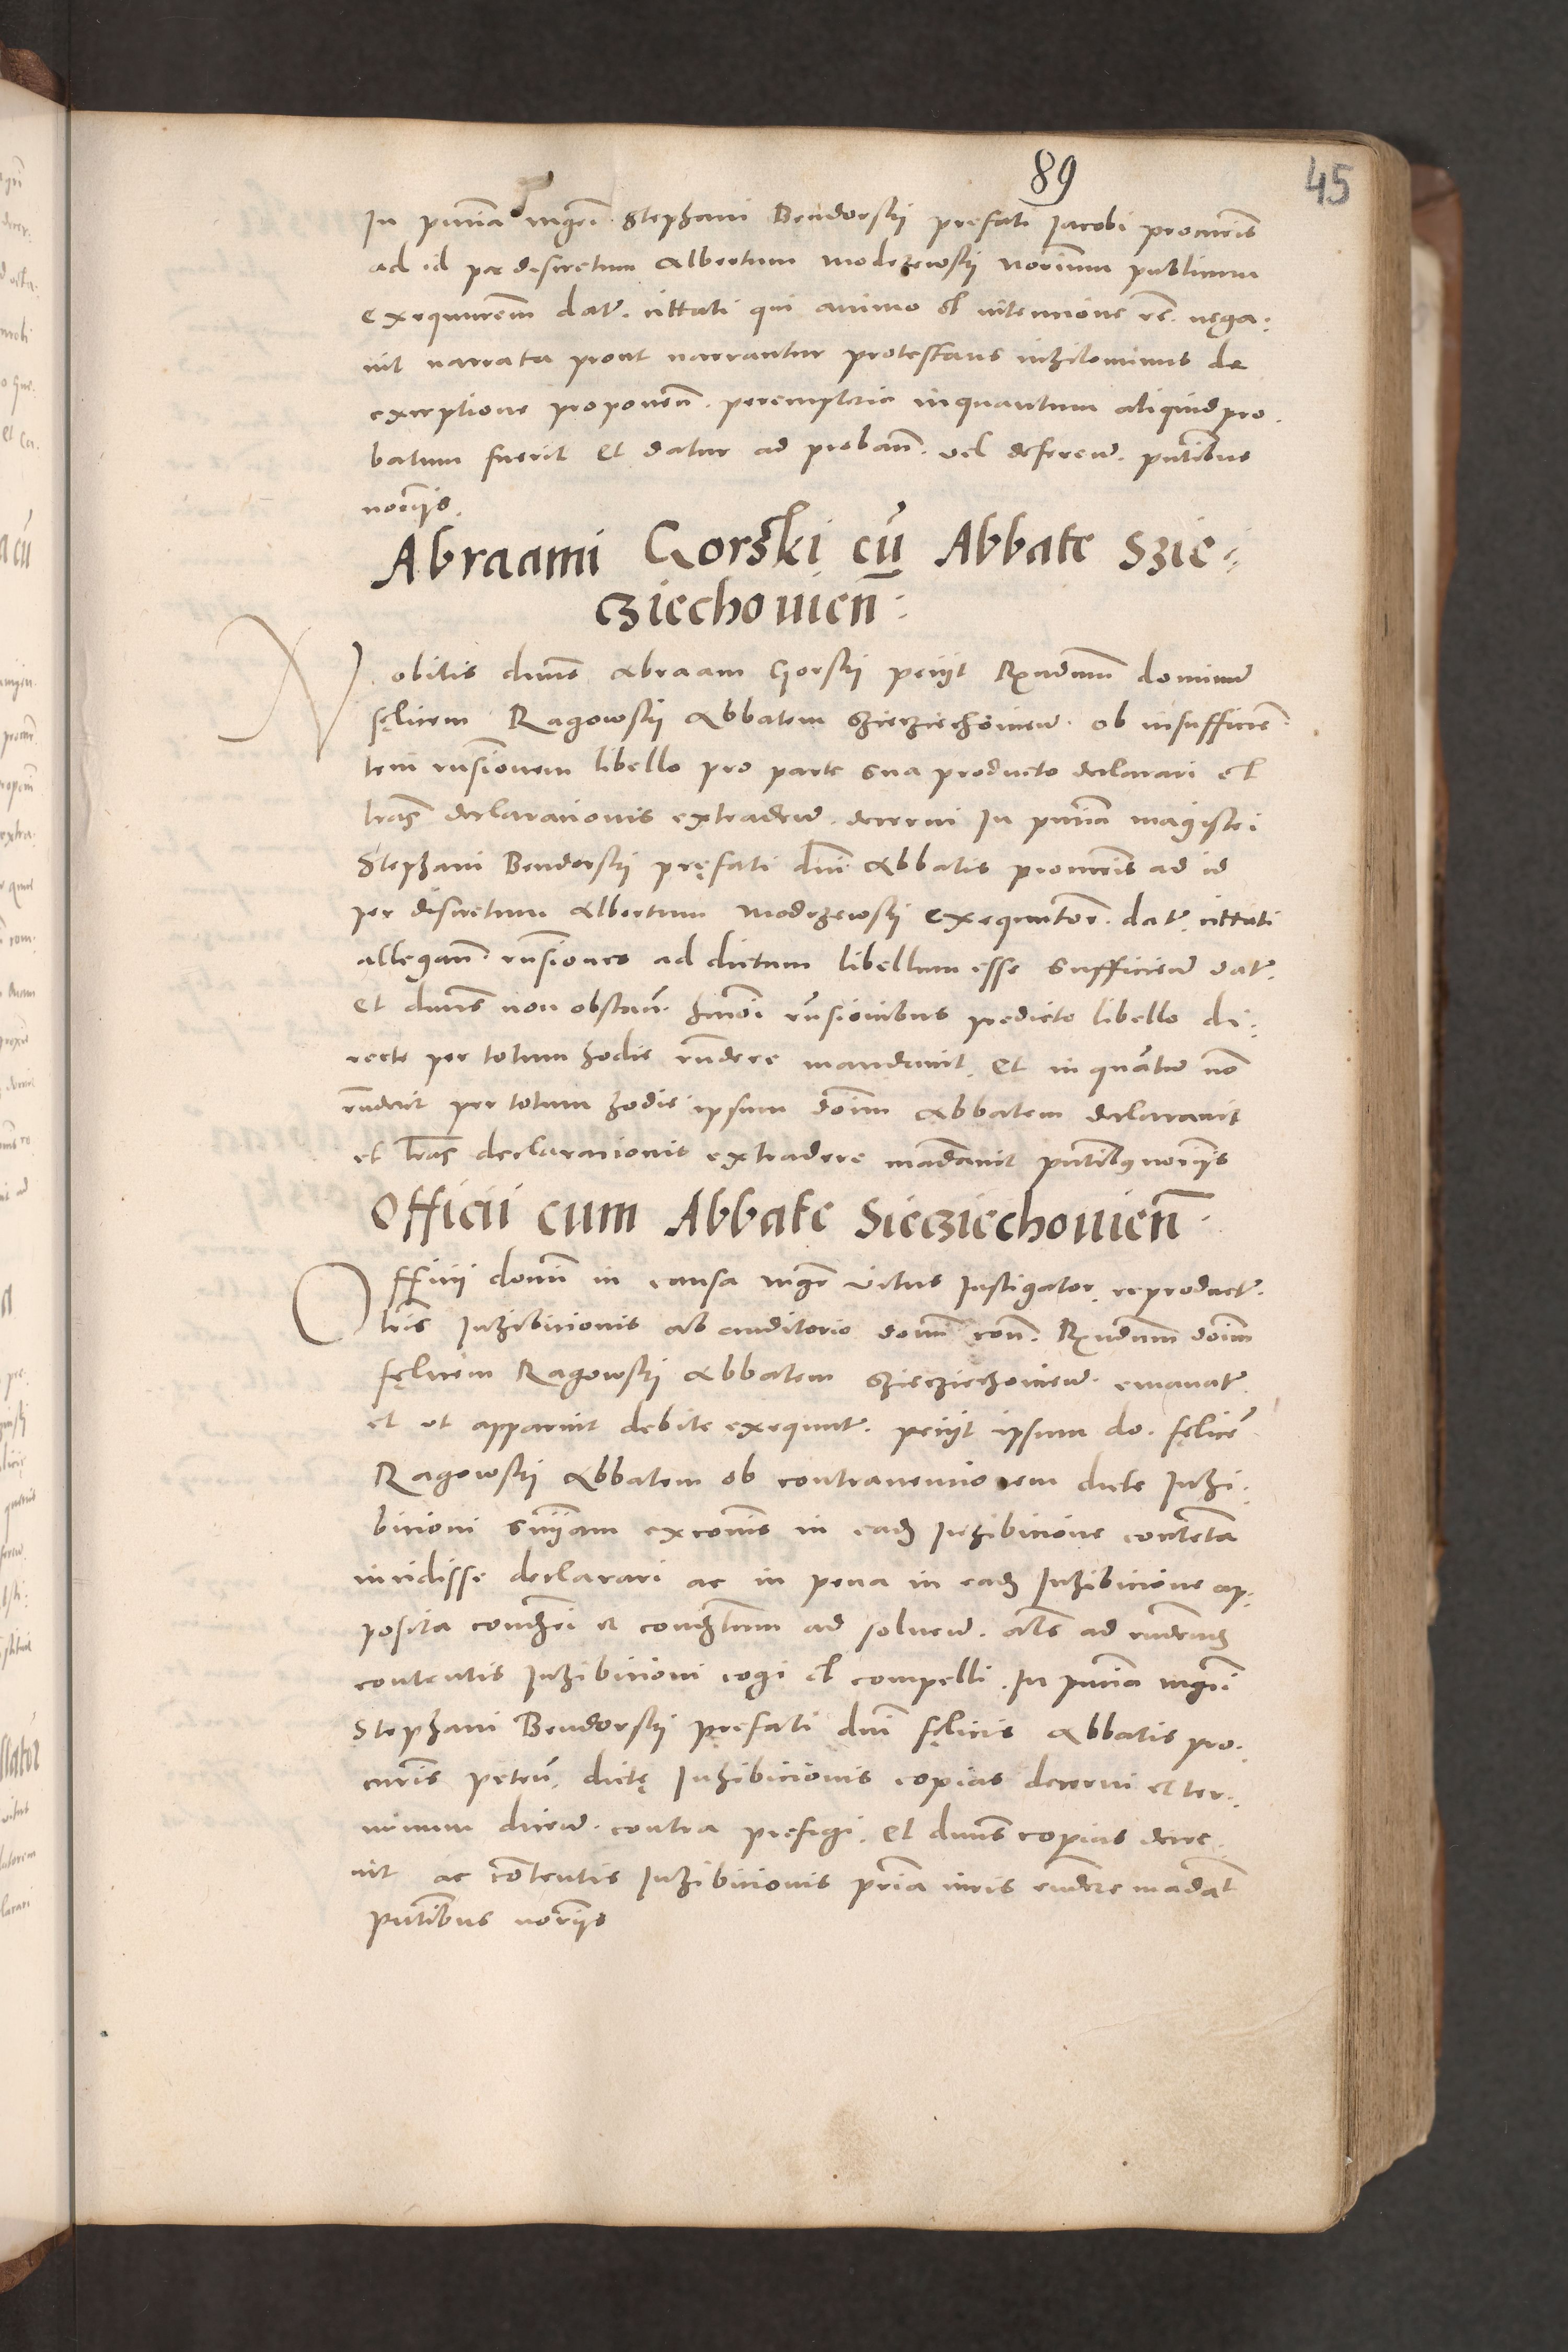 89
45
In pntia mgri Stephani Bendorskij prefati Jacobi procuris
ad id per discretum Albertum Modrzewskij Norium publicum
exequutem dat. cittati qui animo et intencione re. nega-
uit narrata prout narrantur protestans nihilominus de
exceptione proponen. peremptoria inquantum aliquid pro-
batum fuerit Et datur ad proban. vel deferen. pntibus
norijs.
Abraami Gorski cu Abbate Szie-
cziechouien
Nobilis dnus Abraam Gorskij petijt Rndum dominu
felicem Ragowskij Abbatem Szieczиechouien. ob insufficien-
tem rnsionem libello pro parte sua producto declarari et
lras declarationis extraden. decerni In pntia magistri
Stephani Bendorskij prefati dni Abbatis procuris ad id
per discretum Albertum Modrzewskij exequutor. dat. cittati
allegan. rnsiones ad dictum libellum esse sufficien dat.
Et dnus non obstan. hmoi rnsionibus predicto libello di-
recte per totum hodie rndere mandauit. Et in quatu no
rnderit per totum hodie ipsum doim Abbatem declarauit
et lras declarationis extradere madauit pntibus norijs
Officii cum Abbate Siecziechouien
Officij domi in causa mgr Vitus Instigator. reproduct.
lris Inhibicionis ab auditorio domi con. Rndum doim
felicem Ragowskij Abbatem Szieczиechouien. emanat.
et ut apparuit debite exequut. petijt ipsum do. felice
Ragowskij Abbatem ob contrauencionem dicte Inhi-
bicioni snijam excois in eadem Inhibicione contenta
incidisse declarari ac in pena in eadem Inhibicione ap-
posita condemnari et condemnatum ad soluen. ad
contentis Inhibicioni cogi et compelli. In pntia mgri
Stephani Bendorskij prefati dni felicis Abbatis pro-
curis peten. dicte Inhibicionis copias decerni et ter-
minum dicen. contra prefigi. Et dnus copias decre-
uit ac contentis Inhibicionis pria iuris rndere madat
pntibus norijs